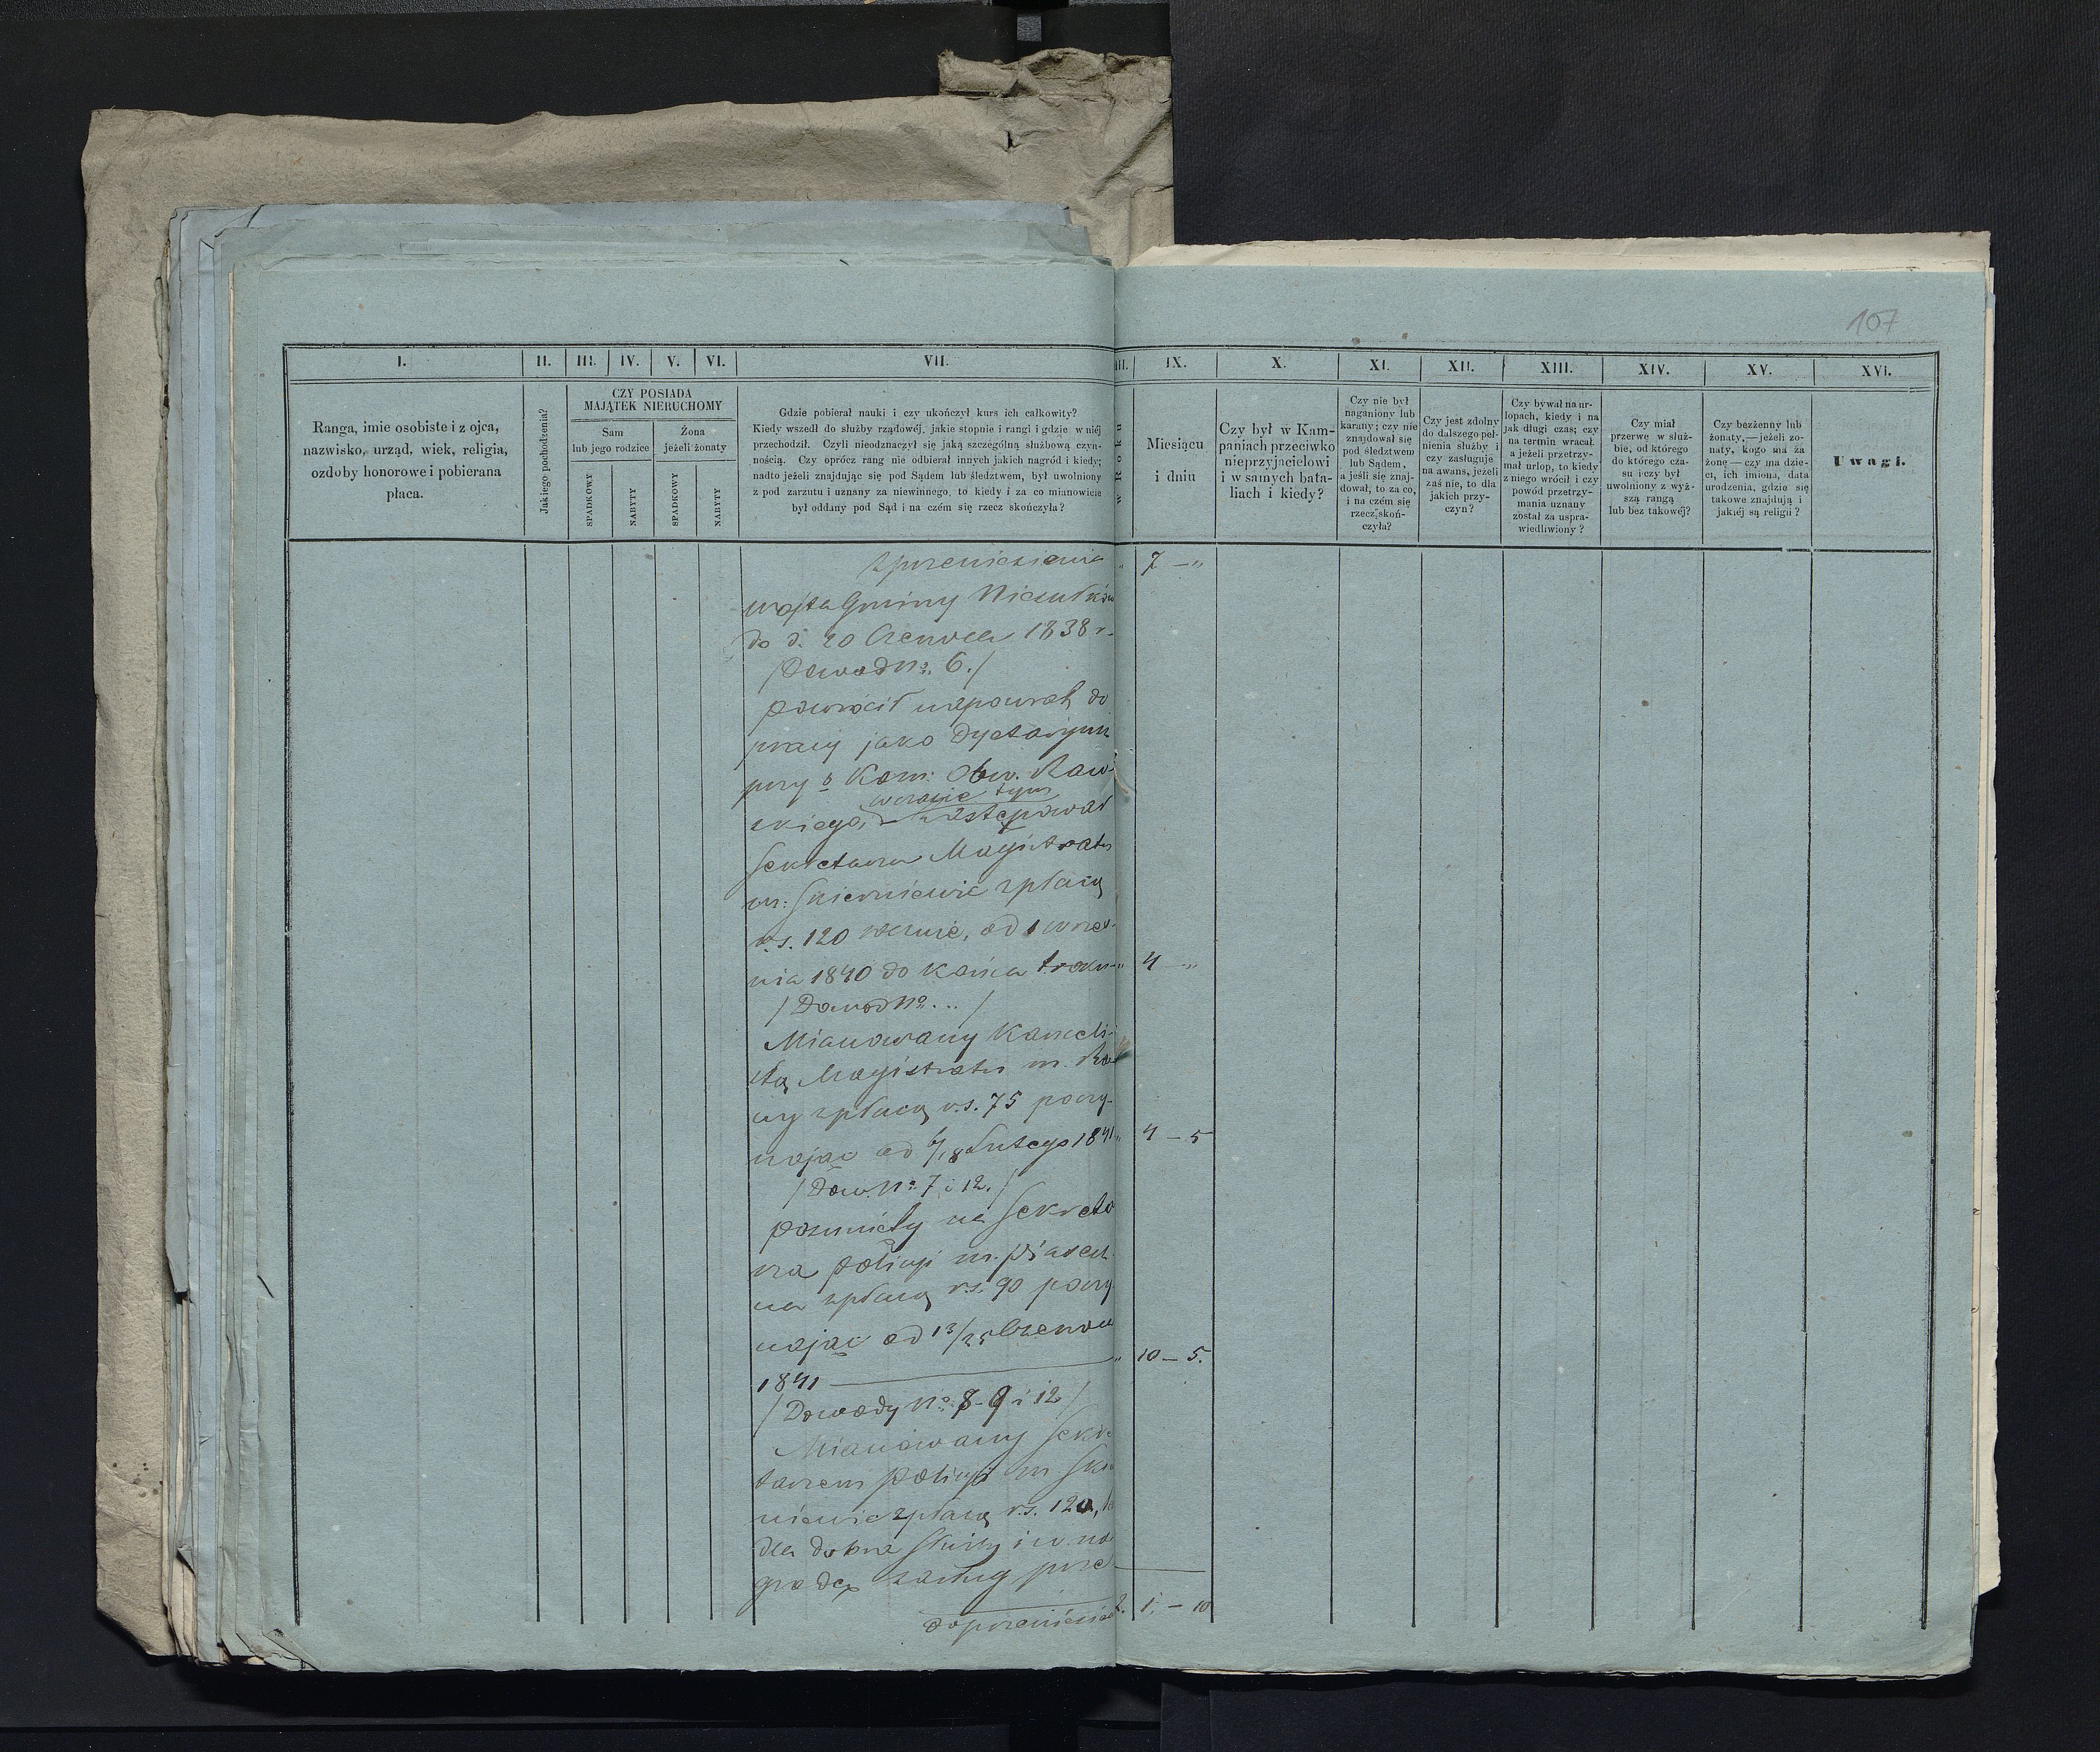 107
I. II. III. IV. V. VI. VII. III. IX. X. XI. XII. XIII. XIV. XV. XVI.
Ranga, imie osobiste i z ojca,
nazwisko, urząd, wiek, religia,
ozdoby honorowe i pobierana
płaca.
Jakiego pochodzenia?
CZY POSIADA
MAJĄTEK NIERUCHOMY
Sam
lub jego rodzice
Żona
jeżeli żonaty
SPADKOWY
NABYTY
SPADKOWY
NABYTY
Gdzie pobierał nauki i czy ukończył kurs ich całkowity?
Kiedy wszedł do służby rządowéj, jakie stopnie i rangi i gdzie w niéj
przechodził. Czyli nieodznaczył się jaką szczególną służbową czyn-
nością. Czy oprócz rang nie odbierał innych jakich nagród i kiedy;
nadto jeżeli znajdując się pod Sądem lub śledztwem, był uwolniony
z pod zarzutu i uznany za niewinnego, to kiedy i za co mianowicie
był oddany pod Sąd i na czém się rzecz skończyła?
w Roku
Miesiącu
i dniu
Czy był w Kam-
paniach przeciwko
nieprzyjacielowi
i w samych bata-
liach i kiedy?
Czy nie był
naganiony lub
karany; czy nie
znajdował się
pod śledztwem
lub Sądem,
a jeśli się znaj-
dował, to za co,
i na czém się
rzecz skoń-
czyła?
Czy jest zdolny
do dalszego peł-
nienia służby i
czy zasługuje
na awans, jeżeli
zaś nie, to dla
jakich przy-
czyn?
Czy bywał na ur-
lopach, kiedy i na
jak długi czas; czy
na termin wracał.
a jeżeli przetrzy-
mał urlop, to kiedy
z niego wrócił i czy
powód przetrzy-
mania uznany
został za uspra-
wiedliwiony?
Czy miał
przerwę w służ-
bie, od którego
do którego cza-
su i czy był
uwolniony z wyż-
szą rangą
lub bez takowéj?
Czy bezżenny lub
żonaty,—jeżeli żo-
naty, kogo ma za
żonę—czy ma dzie-
ci, ich imiona, data
urodzenia, gdzie się
takowe znajdują i
jakiéj są religii?
Uwagi.
z przeniesienia " 7 — "
Wojta Gminy
do d. 20 Czerwca 1838 r.
/Dowod No. 6./
powrócił napowrót do
pracy jako Dyetaryusz
przy b. Kom: Obw. Raw-
w czasie tym
skiego, zastępował
Sekretarza Magistratu
m: Skierniewic z płacą
r.s. 120 rocznie, od 1 wrześ-
nia 1840 do końca t. roku " 4 — "
/Dowod No. ... /
Mianowany Kancelli-
stą Magistratu m. Ra-
wy z płacą r.s. 75 poczy-
nając od 6/18 Lutego 1841 " 4 — 5
/Dow. No. 7 i 12./
posunięty na Sekreta
rza Policyi m. Piasecz-
na z płacą r.s. 90 poczy
nając od 13/25 Czerwca
1841 — " 10 — 5.
/Dowody No. 8-9 i 12/
Mianowany Sekre
tarzem Policyi m Skier
niewic z płacą r.s. 120,
dla dobra służby i w na
grodę zasług prze-
do przeniesienia 2. 1. — 10